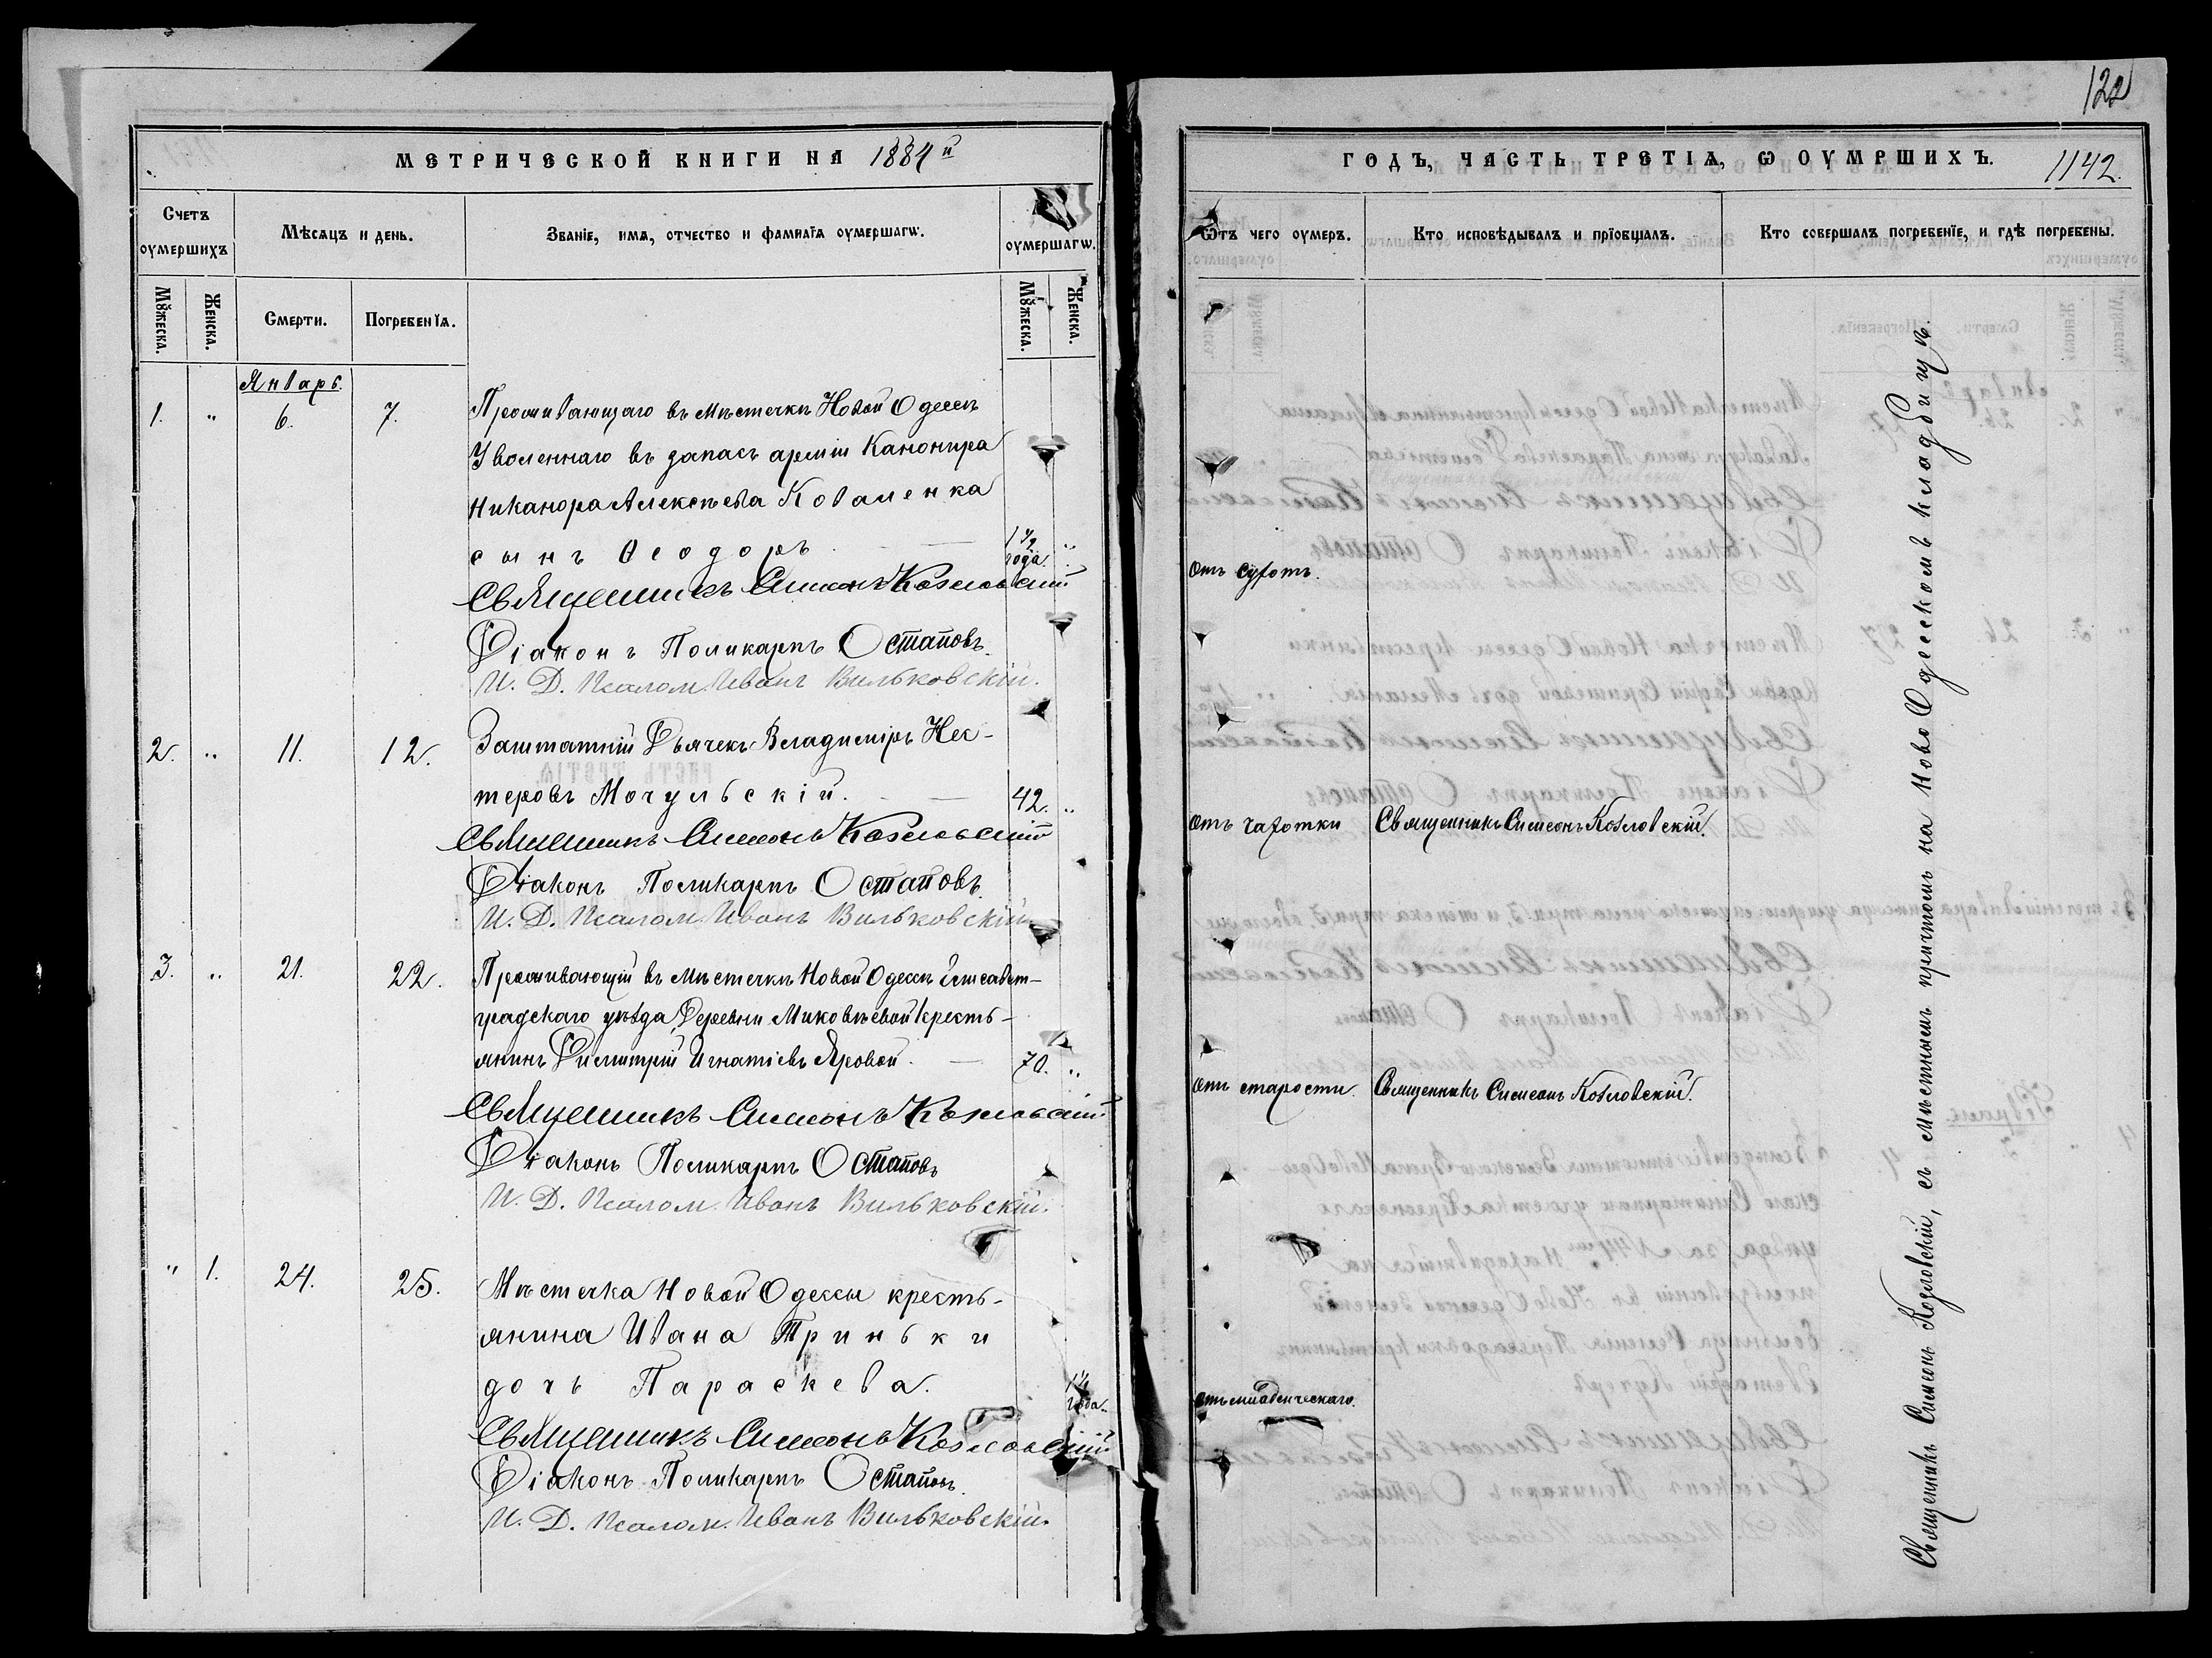 122
МЕТРИЧЕСКОЙ КНИГИ НА 1884й
ГОДЪ, ЧАСТЬ ТРЕТІѦ, Ѡ ОУМРШИХЪ. 1142.
Счетъ оумершихъ
Мѣсяцъ и день.
Званіе, имя, отчество и фамилія оумершагѡ.
оумершагѡ.
Ѿтъ чего оумеръ.
Кто исповѣдывалъ и пріобщалъ.
Кто совершалъ погребеніе, и гдѣ погребены.
Мꙋжеска.
Женска.
Смерти.
Погребенія.
Мꙋжеска.
Женска.
Январь.
1. " 6. 7. Проживающаго въ мѣстечкѣ Новой Одессѣ
Уволеннаго въ запасъ арміи Канонира
Никанора Алексѣева Коваленка
сынъ Ѳеодоръ 1 1/2 года. "
отъ сухотъ.
Священникъ Симеонъ Козловскій
Діаконъ Поликарпъ Остаповъ.
И. Д. Псалом. Иванъ Вильковскій.
2. " 11. 12. Заштатній Дьячекъ Владиміръ Нес-
теровъ Мочульскій. 42. "
отъ чахотки Священникъ Симеонъ Козловскій.
Священникъ Симеонъ Козловскій
Діаконъ Поликарпъ Остаповъ.
И. Д. Псалом. Иванъ Вильковскій.
3. " 21. 22. Проживающій въ мѣстечкѣ Новой Одессѣ Елисавет-
градскаго уѣзда, Деревни Миковѣевой кресть-
янинъ Димитрій Игнатіевъ Яровой. 70. "
отъ старости. Священникъ Симеонъ Козловскій.
Священникъ Симеонъ Козловскій
Діаконъ Поликарпъ Остаповъ
И. Д. Псалом. Иванъ Вильковскій.
" 1. 24. 25. Мѣстечка Новой Одессы кресть-
янина Ивана Триньки
дочь Параскева. года.
отъ младенческаго.
Священникъ Симеонъ Козловскій
Діаконъ Поликарпъ Остаповъ.
И. Д. Псалом. Иванъ Вильковскій.
Священникъ Симеонъ Козловскій, съ мѣстнымъ причтомъ на Ново Одесскомъ кладбищѣ.